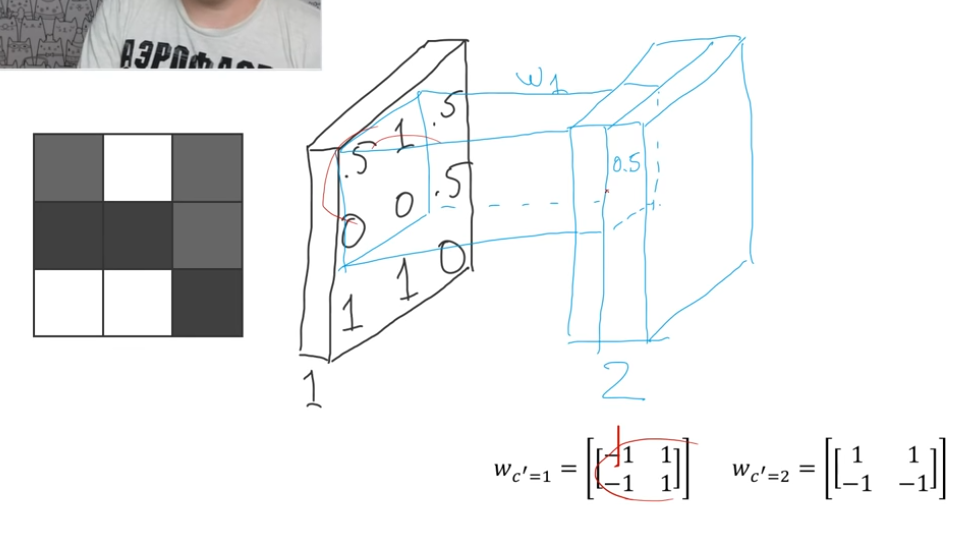 АЭРОФА
w1
.5 1 .5
0 0 .5
1 1 0
0.5
1
2
w_{c'=1} = [[-1 1] [-1 1]] w_{c'=2} = [[1 1] [-1 -1]]